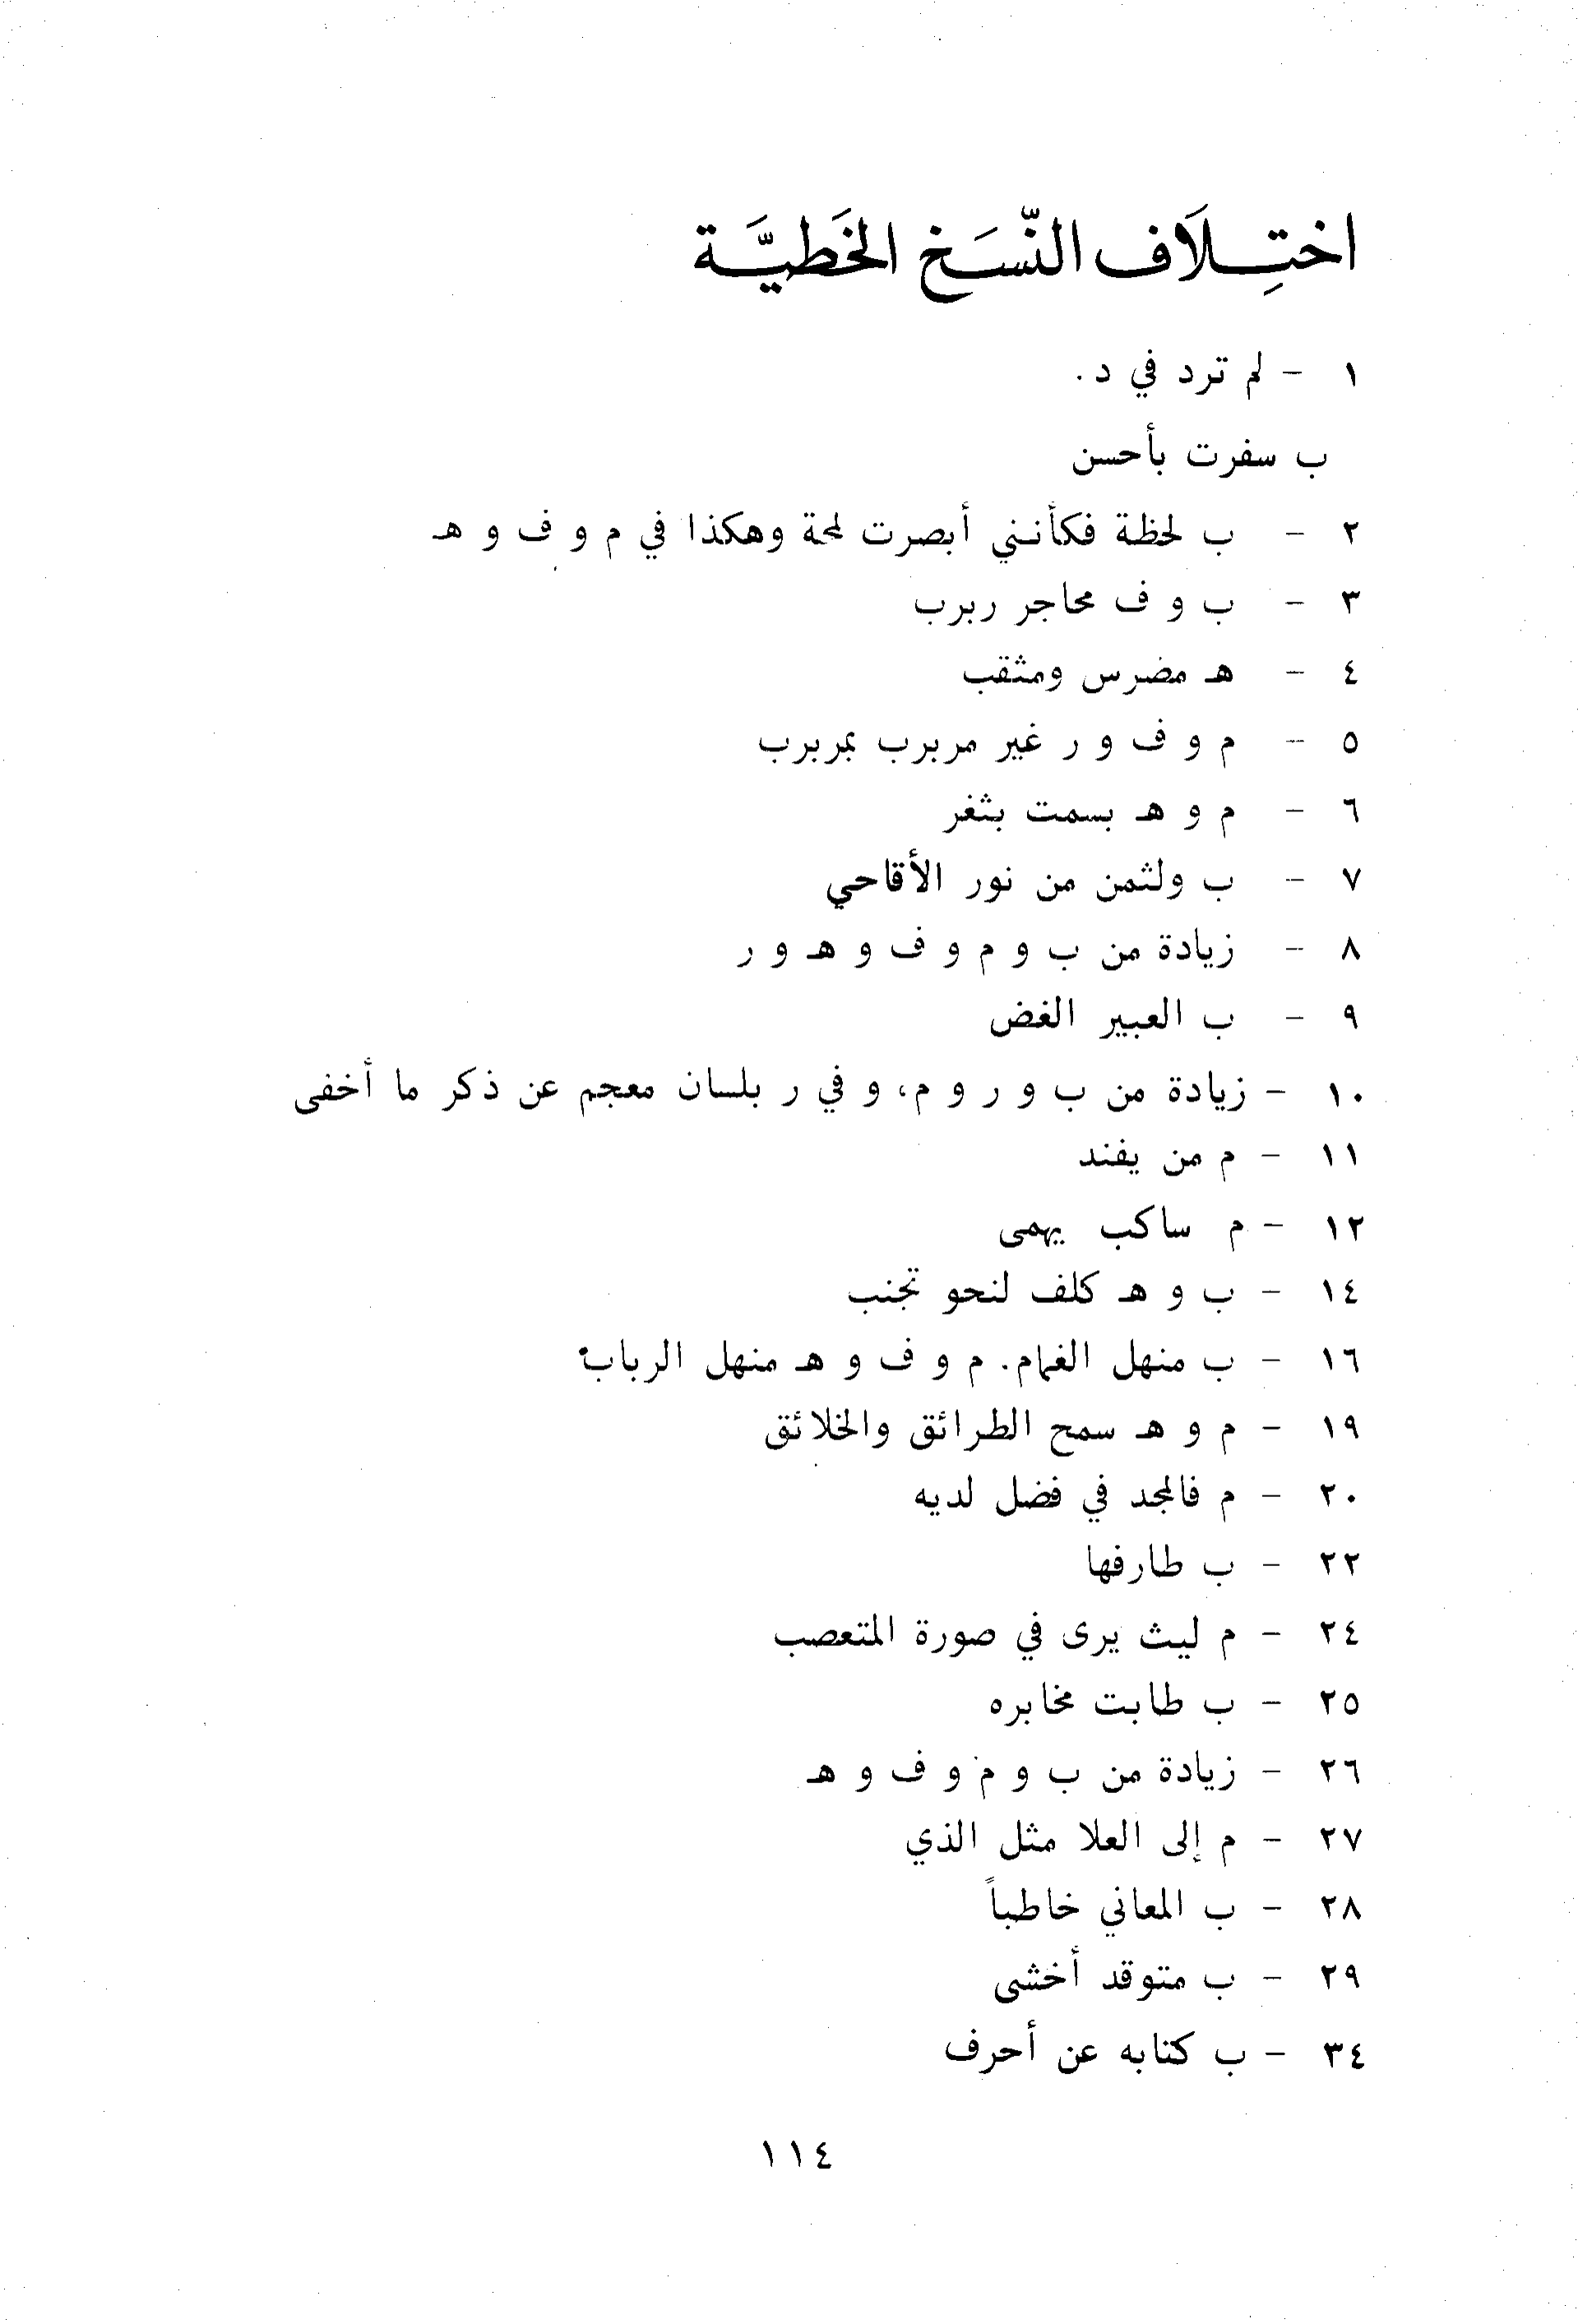 اختِلَاف النّسَخ الخَطيَّة
١ - لم ترد في د.
ب سفرت بأحسن
٢ - ب لحظة فكأنني أبصرت لمحة وهكذا في م و ف و هـ
٣ - ب و ف محاجر ربرب
٤ - هـ مضرس ومثقب
٥ - م و ف و ر غير مربرب بمربرب
٦ - م و هـ بسمت بثغر
٧ - ب ولثمن من نور الأقاحي
٨ - زيادة من ب و م و ف و هـ و ر
٩ - ب العبير الغض
١٠ - زيادة من ب و ر و م، و في ر بلسان معجم عن ذكر ما أخفى
١١ - م من يفند
١٢ - م ساكب يهمى
١٤ - ب و هـ كلف لنحو تجنب
١٦ - ب منهل الغمام. م و ف و هـ منهل الرباب
١٩ - م و هـ سمح الطرائق والخلائق
٢٠ - م فالمجد في فضل لديه
٢٢ - ب طارفها
٢٤ - م ليث يرى في صورة المتعصب
٢٥ - ب طابت مخابره
٢٦ - زيادة من ب و م و ف و هـ
٢٧ - م إلى العلا مثل الذي
٢٨ - ب المعاني خاطباً
٢٩ - ب متوقد أخشى
٣٤ - ب كتابه عن أحرف
١١٤